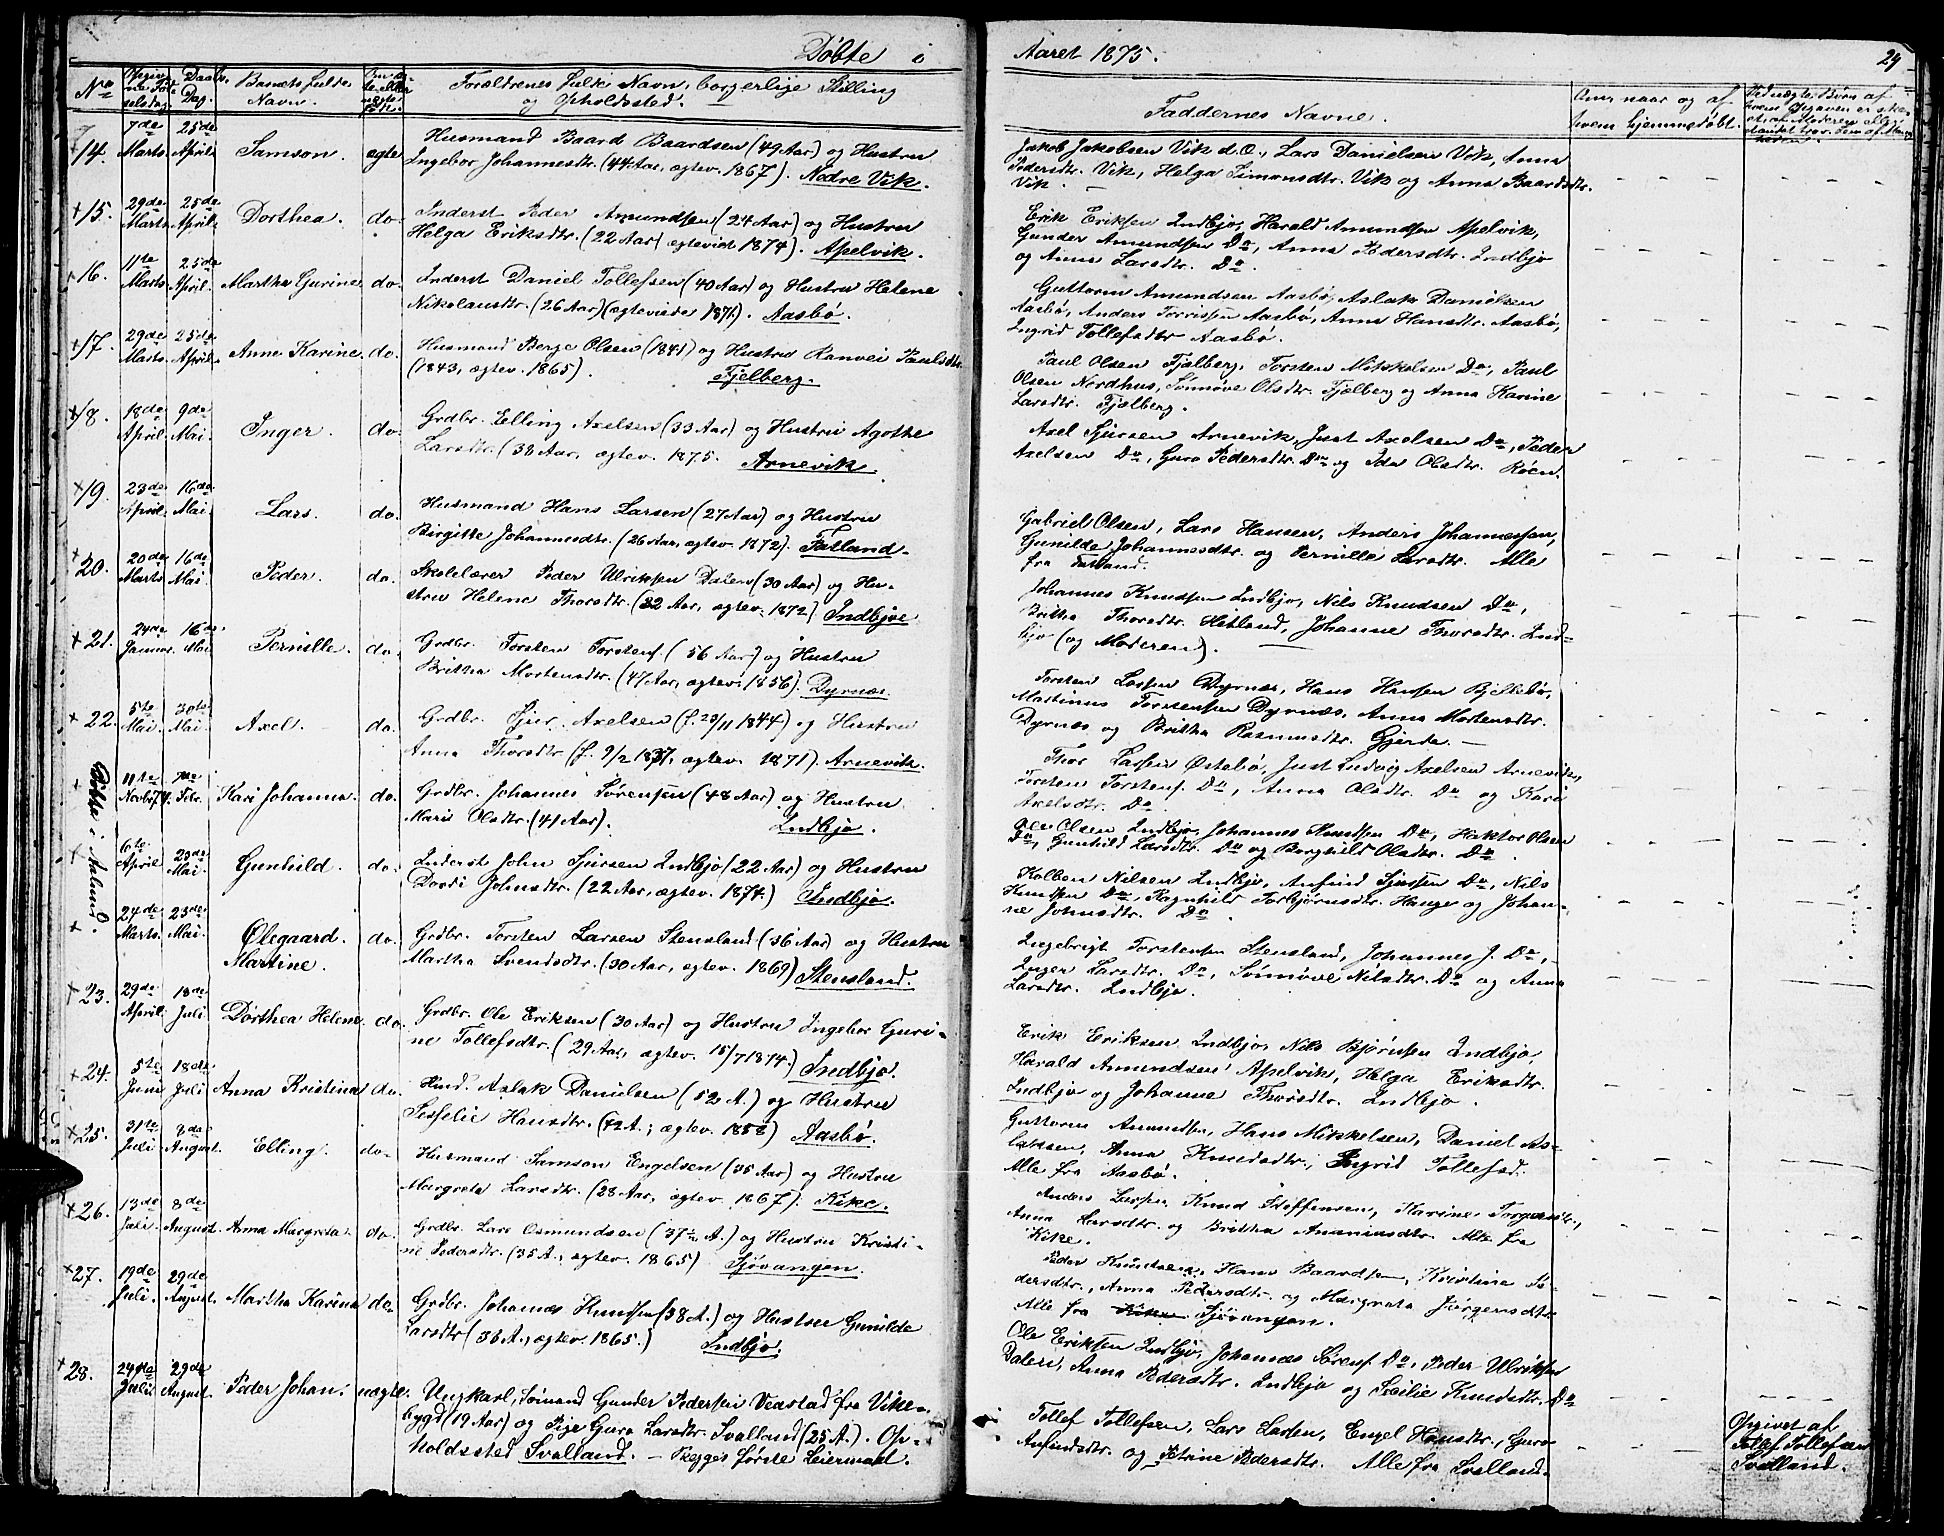 Døbte i
Aaret 1875.
29
No
Opgivne Fødselsdag.
Daabs-Dag.
Barnets fulde Navn.
Forældrenes fulde Navn, borgerlige Stilling og Opholdssted.
Faddernes Navne.
Om, naar og af hvem hjemmedøbt.
14. 7de Marts 25de April Samson. ægte
Husmand Baard Baardsen (49 Aar) og Hustru
Ingebor Johannesdtr. (44 Aar, ægtev. 1867). Nedre Vik.
Jakob Jakobsen Vik d.O., Lars Danielsen Vik, Anna
Pedersdtr. Vik, Helga Simonsdtr. Vik og Anna Baardsdtr.
Vik.
15. 29de Marts 25de April Dorthea. do.
Inderst Peder Amundsen (24 Aar) og Hustru
Helga Eriksdtr. (22 Aar, ægteviet 1874). Apelvik.
Erik Eriksen Indbjo, Harald Amundsen Apelvik,
Gunder Amundsen Do, Anna Pedersdtr. Indbjo
og Anna Larsdtr. Do.
16. 11te Marts 25de April Martha Gurine do.
Inderst Daniel Tollefsen (40 Aar) og Hustru Helene
Nikolausdtr. (26 Aar) (ægteviede 1871). Aasbø.
Guttorm Amundsen Aasbø, Aslak Danielsen
Aasbø, Anders Torrissen Aasbø, Anna Hansdtr. Aasbø,
Ingrid Tollefsdtr Aasbø.
17. 29de Marts 25de April Anne Karine do.
Husmand Berge Olsen (1841) og Hustru Ranvei Paulsdtr
(1843, ægtev. 1865). Fjelberg.
Paul Olsen Fjelberg, Torsten Mikkelsen Do, Paul
Olsen Nordhus, Sønnøve Olsdtr. Fjelberg og Anna Karine
Larsdtr. Fjelberg.
18. 18de April 9de Mai Inger. do.
Grdbr. Elling Axelsen (33 Aar) og Hustru Agothe
Larsdtr. (38 Aar, ægtev. 1875. Arnevik.
Axel Sjursen Arnevik, Just Axelsen Do, Peder
Axelsen Do, Guro Pedersdtr. Do og Ida Olsdtr. Røen.
19. 23de April 16de Mai Lars. do.
Husmand Hans Larsen (27 Aar) og Hustru
Birgitte Johannesdtr. (26 Aar, ægtev. 1872). Fatland.
Gabriel Olsen, Lars Hansen, Anders Johannessen,
Gunilde Johannesdtr. og Pernille Larsdtr. Alle
fra Fatland.
20. 20de Marts 16de Mai Peder. do.
Skolelærer Peder Ulriksen Dalen (30 Aar) og Hu-
stru Helene Thorsdtr. (32 Aar, ægtev. 1872) Indbjoe
Johannes Knudsen Indbjo, Nils Knudsen Do,
Britha Thorsdtr. Hetland, Johanne Thorsdtr. Ind-
bjo (og Moderen).
21. 24de Januar 16de Mai Pernille. do.
Grdbr. Torsten Torstens. (56 Aar) og Hustru
Britha Mortensdtr. (47 Aar, ægtev. 1856). Dyrnæs.
Torsten Larsen Dyrnæs, Hans Hansen Bjellebø,
Martinus Torstensen Dyrnæs, Anna Mortensdtr.
Dyrnæs og Britha Rasmusdtr. Gjerde.
22. 5te Mai 30te Mai Axel. do.
Grdbr. Sjur Axelsen (f. 23/11 1844) og Hustru
Anna Thorsdtr (f. 9/2 1837, ægtev. 1871). Arnevik.
Thor Larsen Østebø, Just Ludvig Axelsen Arnevik,
Torsten Torstens. Do, Anna Olsdtr. Do og Kari
Axelsdtr. Do
Døbte i Aalund.
11te Novbr 74. 7de Febr. Kari Johanna. do.
Grdbr. Johannes Sørensen (48 Aar) og Hustru
Maris Olsdtr. (41 Aar). Indbjo.
Ole Olsen Indbjo, Johannes Knudsen Do, Haktor Olsen
Do, Gunhild Larsdtr. Do og Borghild Olsdtr. Do.
6te April 23de Mai Gunhild. do.
Inderst John Sjursen Indbjo (22 Aar) og Hustru
Dordi Johnsdtr. (22 Aar, ægtev. 1874.) Indbjo.
Kolben Nilsen Indbjo, Anfind Sjursen Do, Nils
Knudsen Do, Ragnhild Torbjørnsdtr. Hauge og Johan-
ne Johnsdtr. Do
24de Marts 23de Mai. Ølegaard Martine. do.
Grdbr. Torsten Larsen Stensland (36 Aar) og Hustru
Martha Svendsdtr. (30 Aar, ægtev. 1869) Stensland.
Ingebrigt Torstensen Stensland, Johannes J. Do,
Inger Larsdtr. Do, Sønnøve Nilsdtr. Do og Anna
Larsdtr. Indbjo.
23. 29de April 18de Juli Dorthea Helene do.
Grdbr. Ole Eriksen (30 Aar) og Hustru Ingebor Guri-
ne Tollefsdtr. (29 Aar, ægtev. 15/7 1874.) Indbjo.
Erik Eriksen Indbjo, Nils Bjørnsen Indbjo,
Harald Amundsen Apelvik, Helga Eriksdtr.
Indbjo og Johanne Thorsdtr. Indbjo.
24. 5te Juni 18de Juli Anna Kristina do.
Aslak Danielsen (52 A.) og Hustru
Hansdtr. (42 A.; ægtev. 1858) Aasbø.
Guttorm Amundsen, Hans Mikkelsen, Daniel As-
laksen, Anna Knudsdtr., Ingrid Tollefsd.
Alle fra Aasbø.
25. 31te Juli 8de August Elling. do.
Husmand Samson Engelsen (35 Aar) og Hustru
Margreta Larsdtr. (28 Aar, ægtev. 1867). Kike.
Anders Larsen, Knud Steffensen, Karine Torgersdtr.,
Anna Larsdtr. og Britha Ananiasdtr. Alle fra
Kike.
26. 13de Juli 8de August Anna Margreta do.
Grdbr. Lars Osmundsen (37½ A.) og Hustru Kristi-
ne Pedersdtr. (35 A., ægtev. 1865) Sjovangen.
Peder Knudsen, Hans Baardsen, Kristine Pe-
dersdtr., Anna Pedersdtr. og Margreta Jørgensdtr.
Alle fra Sjøvangen.
27. 19de Juli. 29de August Martha Karina do.
Grdbr. Johannes Knudsen (38 A.) og Hustru Gunilde
Larsdtr (33 A., ægtev. 1865.) Indbjo.
Ole Eriksen Indbjo, Johannes Sørens. Do, Peder Ulriksen
Dalen, Anna Pedersdtr. Indbjo og Sesilie Knudsdtr. Do
28. 24de Juli 29de August Peder Johan. uægte.
Ungkarl, Sømand Gunder Pedersen Veastad fra Vike-
bygd (19 Aar) og Pige Guro Larsdtr. Svalland (25 A.). Op-
holdssted Svalland. – Begges første Leiermaal.
Tollef Tollefsen, Lars Larsen, Engel Hansdtr., Guro
Anfindsdtr. og Petrine Pedersdtr. Alle fra Svalland.
Opgivet af
Tollef Tollefsen
Svalland.